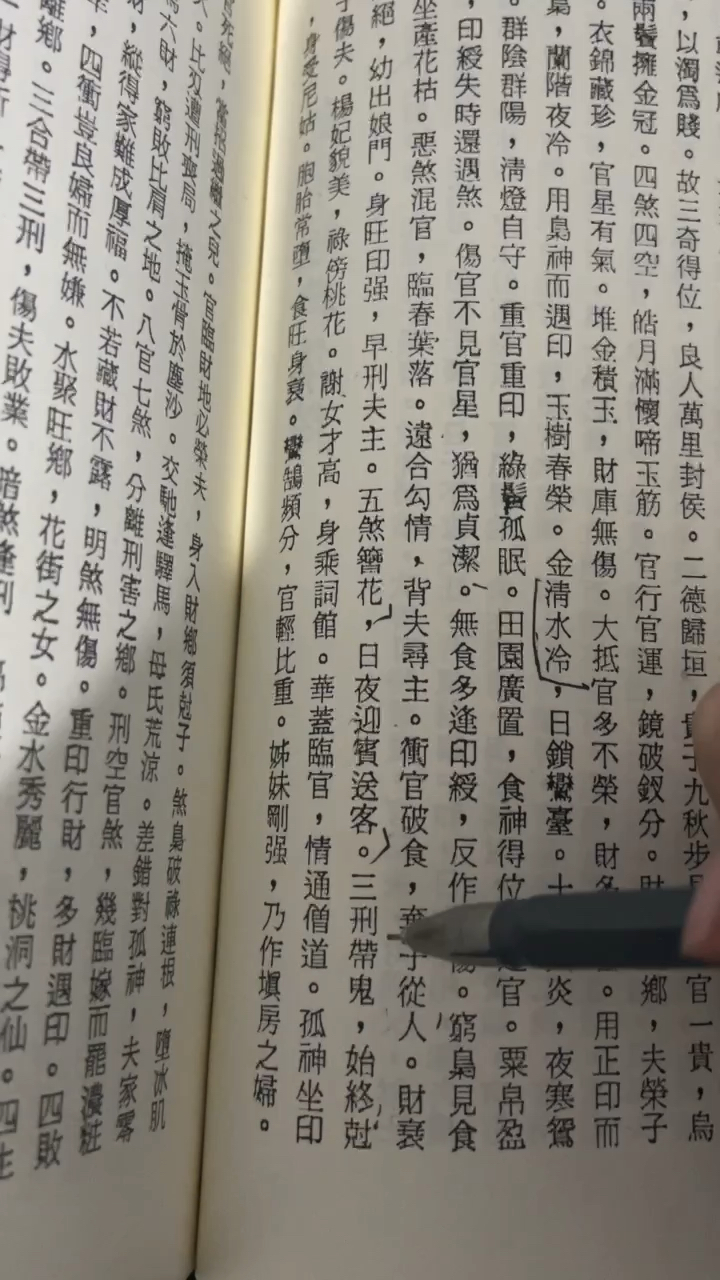 ，以濁爲賤。故三奇得位，良人萬里封侯。二德歸垣，貴子九秋步
兩鬢擁金冠。四煞四空，皓月滿懷啼玉筋。官行官運，鏡破釵分。財
官一貴，烏
鄉，夫榮子
。衣錦藏珍，官星有氣。堆金積玉，財庫無傷。大抵官多不榮，財多
。用正印而
梟，蘭階夜冷。用梟神而遇印，玉樹春榮。金清水冷，日鎖鸞臺。土
炎，夜寒鴛
。群陰群陽，淸燈自守。重官重印，綠鬢孤眠。田園廣置，食神得位
官。粟帛盈
，印綬失時還遇煞。傷官不見官星，猶爲貞潔。無食多逢印綬，反作
傷。窮梟見食
坐產花枯。惡煞混官，臨春葉落。遠合勾情，背夫尋主。衝官破食，棄子從人。財衰
絕，幼出娘門。身旺印强，早刑夫主。五煞簪花，日夜迎賓送客。三刑帶鬼，始終尅
子傷夫。楊妃貌美，祿傍桃花。謝女才高，身乘詞館。華蓋臨官，情通僧道。孤神坐印
，身愛尼姑。胞胎常墮，食旺身衰。鸞鵠頻分，官輕比重。姊妹剛强，乃作塡房之婦。
官死絕，當招過繼之兒。官臨財地必榮夫，身入財鄉須尅子。煞梟破祿連根，墮冰肌
。比刃遭刑喪局，掩玉骨於塵沙。交馳逢驛馬，母氏荒涼。差錯對孤神，夫家零
爲六財，窮敗比肩之地。八官七煞，分離刑害之鄉。刑空官煞，幾臨嫁而罷濃粧
財，縱得家難成厚福。不若藏財不露，明煞無傷。重印行財，多財遇印。四敗
，四衝豈良婦而無嫌。水聚旺鄉，花街之女。金水秀麗，桃洞之仙。四生
離鄉。三合帶三刑，傷夫敗業。暗煞逢刑